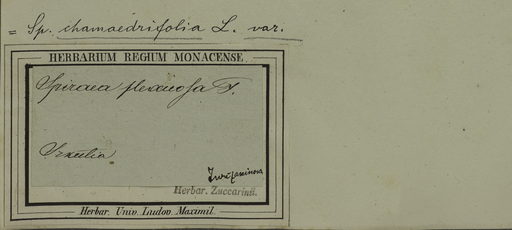 = Sp. chamaedrifolia L. var.
HERBARIUM REGIUM MONACENSE.
Spiraea flexuosa F.
Herbar. Zuccarinii.
Herbar. Univ. Ludov. Maximil.